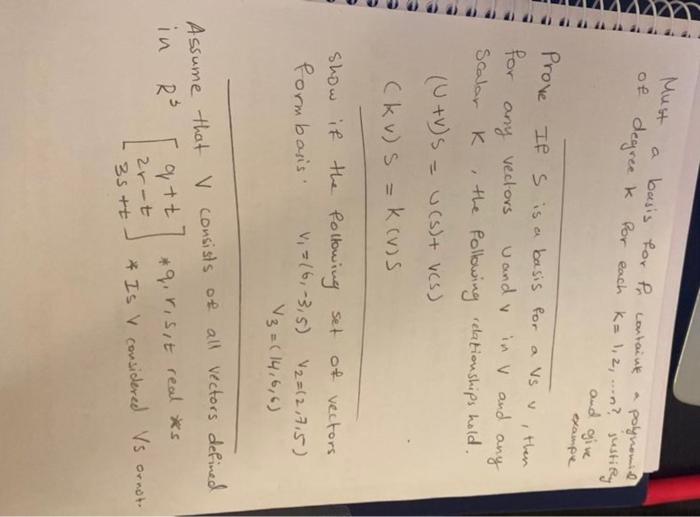 Must a basis for Pn containk a polynomial
of degree k for each k = 1, 2, ....n? justify
and give
example
Prove If S is a basis for a VS v, then
for any vectors u and v in V and any
Scalar K, the following relationships hold.
(U+V)S = U(S) + V(S)
(kv) S = K (V) S
Show if the following set of vectors
form basis. V1 = (6, -3, 5) V2 = (2, 7, 5)
V3 = (14, 6, 6)
Assume that V consists of all vectors defined
in R3 [ q+t
2r-t
3s+t ] * q, r, s, t real #s
* Is V considered Vs or not.